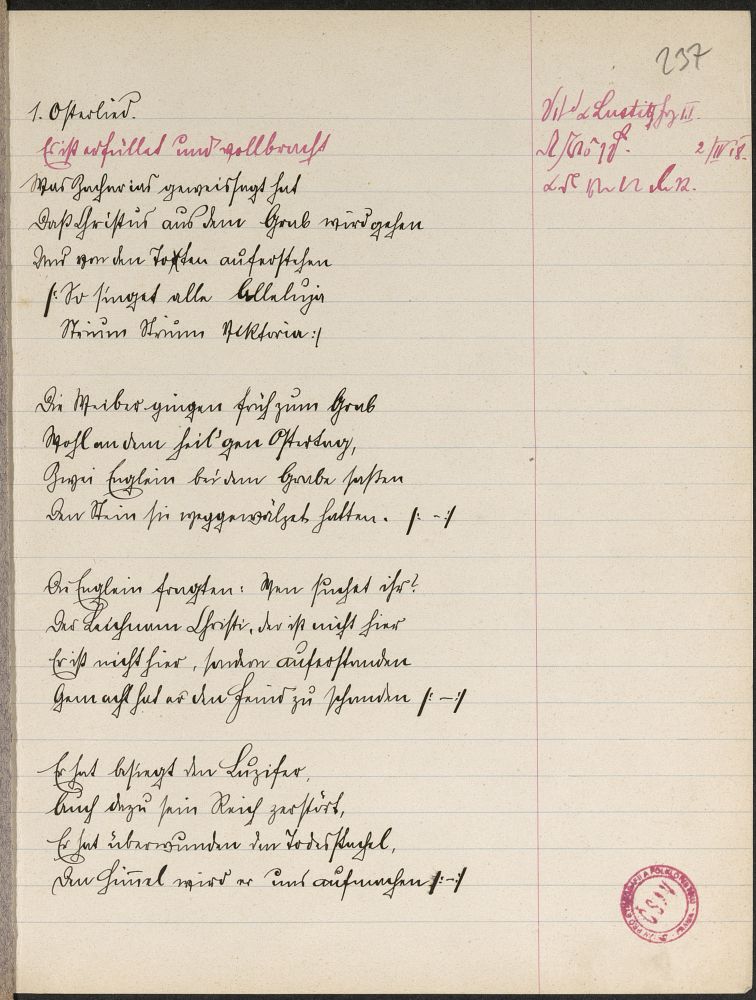 237
1. Osterlied.
Es ist erfüllet und vollbracht
Was Zacharias geweissagt hat
Daß Christus aus dem Grab wird gehen
Und von den Toten auferstehen
/: So singet alle Alleluja
Strium Strium Viktoria :/
Die Weiber gingen früh zum Grab
Wohl an dem heil'gen Ostertag,
Zwei Englein bei dem Grabe saßen
Den Stein sie weggewälzet hatten. /: - :/
Die Englein fragten: Wen suchet ihr?
Der Leichnam Christi, der ist nicht hier
Er ist nicht hier, sondern auferstanden
Gemacht hat er den Feind zu schanden /: - :/
Er hat besiegt den Luzifer,
Auch dazu sein Reich zerstört,
Er hat überwunden den Todesstachel,
Den Himmel wird er uns aufmachen /: - :/
Lustitz
2/IV 18.
ČSAV